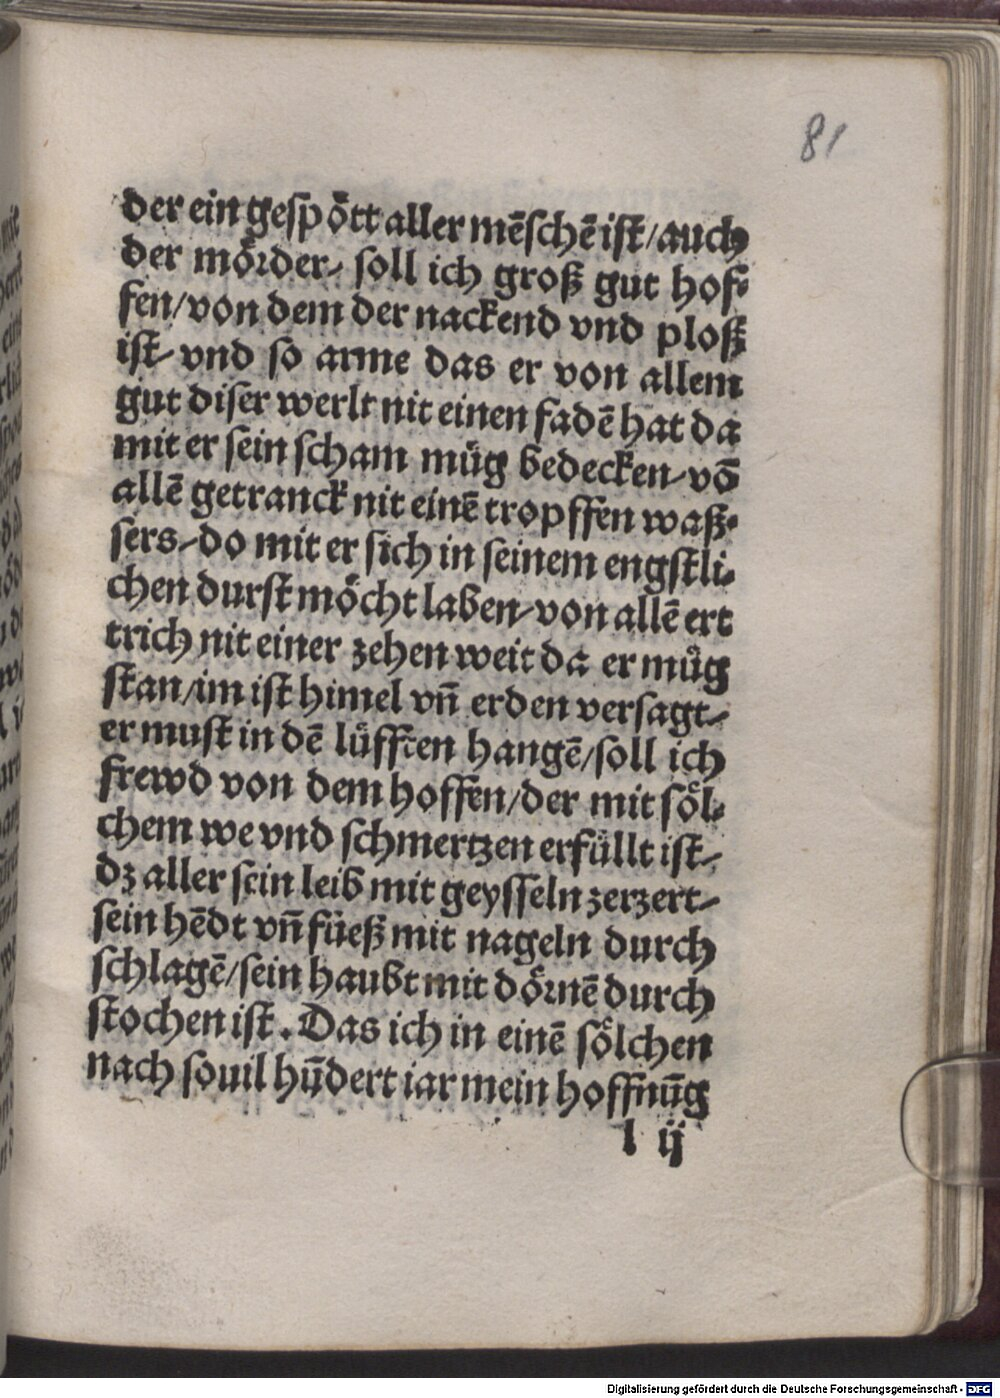 81
der ein gespött aller mēschē ist/auch
der mörder/ soll ich groß gut hof⸗
fen/von dem der nackend vnd ploß
ist/ vnd so arme das er von allem
gut diser werlt nit einen fadē hat da
mit er sein scham müg bedecken/ vō
allē getranck nit einē tropffen waß⸗
sers/ do mit er sich in seinem engstli⸗
chen durst möcht laben/ von allē ert
trich nit einer zehen weit da er müg
stan/im ist himel vn̄ erden versagt/
er must in dē lüfften hangē/soll ich
frewd von dem hoffen/der mit söl⸗
chem we vnd schmertzen erfüllt ist/
dz aller sein leib mit geysseln zerzert/
sein hēdt vn̄ füeß mit nageln durch
schlagē/sein haubt mit dörnē durch
stochen ist. Das ich in einē sölchen
nach souil hūdert iar mein hoffnūg
l ij
Digitalisierung gefördert durch die Deutsche Forschungsgemeinschaft - DFG